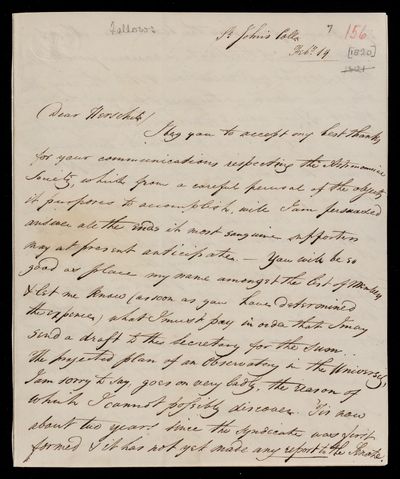 Fellows
7
156
St Johns Coll.
Feby 19
[1820]
1821
Dear Herschel/
I beg you to accept my best thanks
for your communications respecting the Astronomical
Society, which from a careful perusal of the objects
it purposes to accomplish, will I am persuaded
answer all the ends its most sanguine supporters
may at present anticipate. — You will be so
good as place my name amongst the list of Members
& let me know (as soon as you have determined
the expences) what I must pay in order that I may
send a draft to the secretary for the sum.
The projected plan of an Observatory in the University,
I am sorry to say, goes on very badly, the reason of
which I cannot possibly discover. 'Tis now
about two years since the syndicate was first
formed & it has not yet made any report to the Senate.